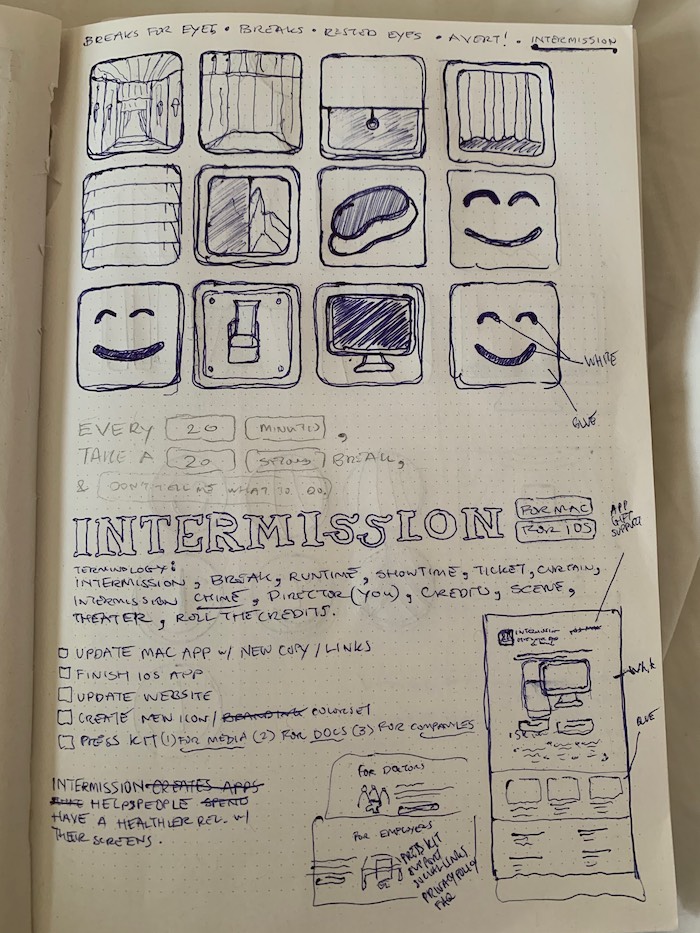 BREAKS FOR EYES • BREAKS • RESTED EYES • AVERT! • INTERMISSION
WHITE
BLUE
EVERY 20 MINUTES,
TAKE A 20 SECOND BREAK,
& DON'T TELL ME WHAT TO DO.
INTERMISSION
FOR MAC
FOR IOS
APP
GIFT
SUPPORT
TERMINOLOGY:
INTERMISSION, BREAK, RUNTIME, SHOWTIME, TICKET, CURTAIN,
INTERMISSION CHIME, DIRECTOR (YOU), CREDITS, SCENE,
THEATER, ROLL THE CREDITS.
UPDATE MAC APP W/ NEW COPY/LINKS
FINISH IOS APP
UPDATE WEBSITE
CREATE NEW ICON/BRANDING COLORSET
PRESS KIT (1) FOR MEDIA (2) FOR DOCS (3) FOR COMPANIES
INTERMISSION CREATES APPS
HELPS PEOPLE SPEND
HAVE A HEALTHIER REL. W/
THEIR SCREENS.
INTERMISSION
BLUE
FOR DOCTORS
FOR EMPLOYERS
PRESS KIT
SUPPORT
SOCIAL LINKS
PRIVACY POLICY
FAQ